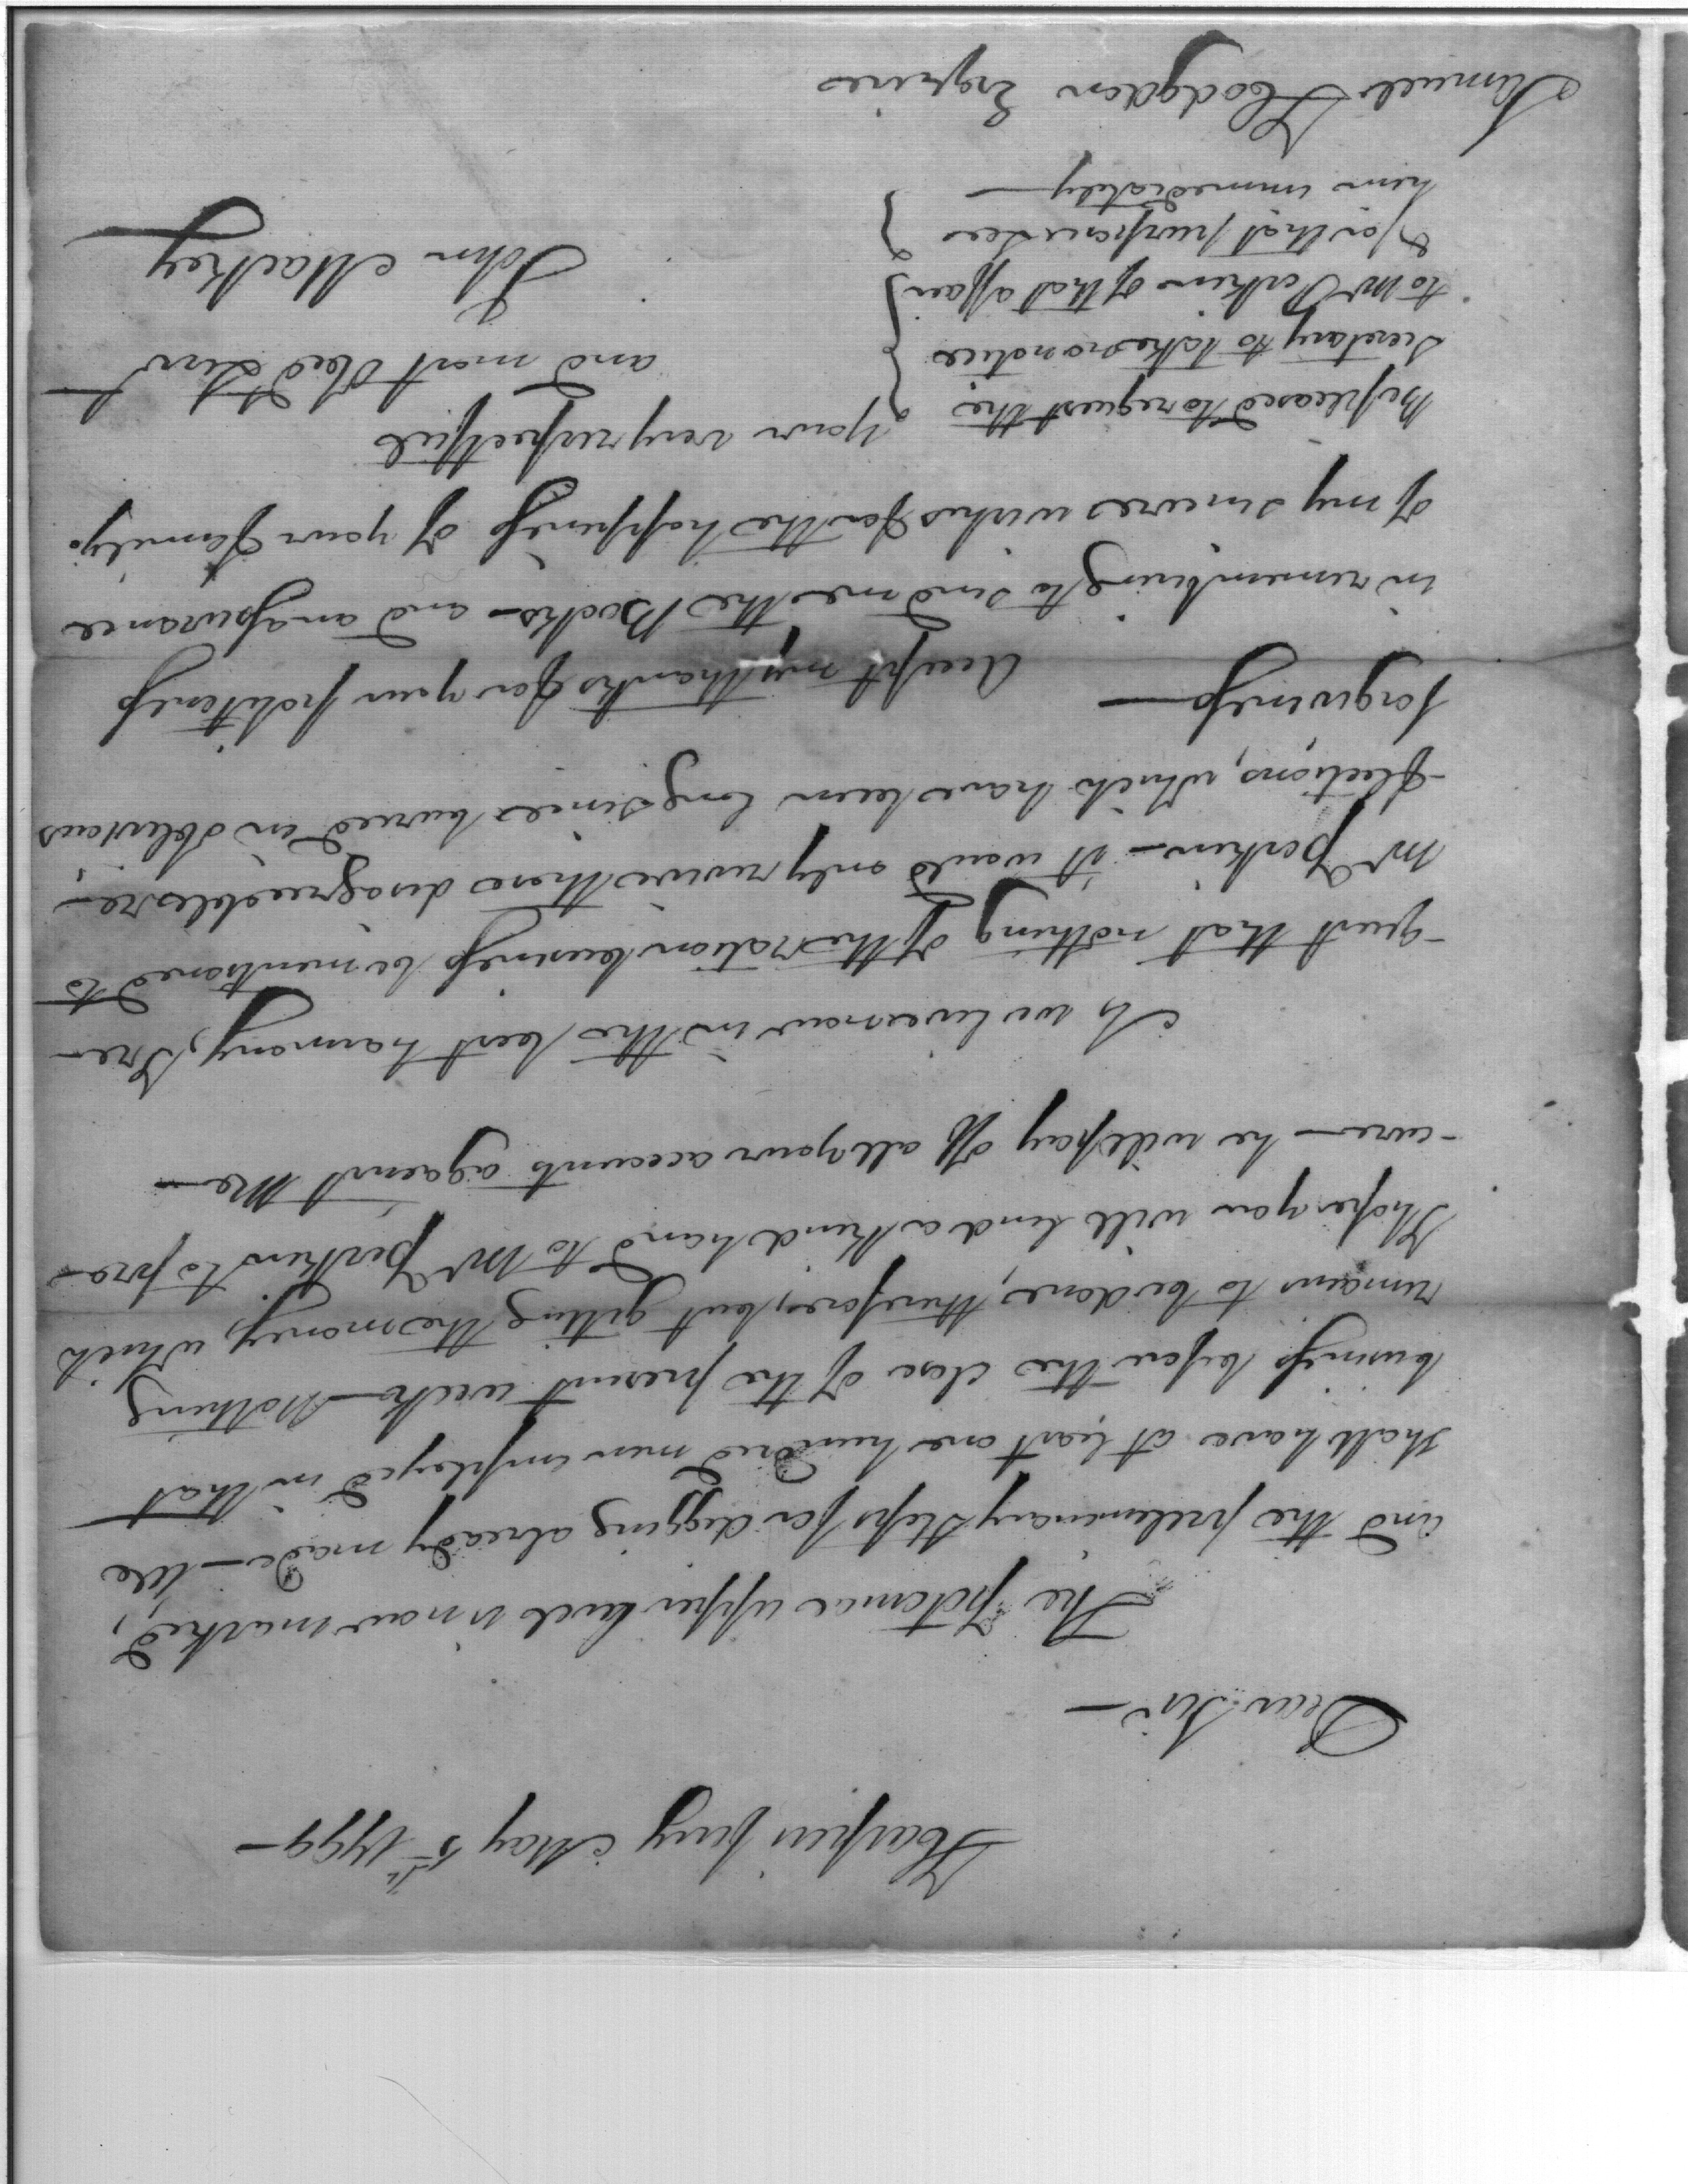 Harpers ferry May 5th 1799—
Dear Sir—
The potomac upper level is now marked,
and the preliminary steps for digging already made— We
shall have at least one hundred men employed in that
business before the close of the present week— Nothing
remains to be done, therefore, but getting the money, which
I hope you will lend a kind hand to Mr perkin to pro-
-cure— he will pay off all your accounts against Me—
As we live now in the best harmony, I re-
-quest that nothing of the ration business be mentioned to
Mr perkin— it would only revive those disagreeable re-
-flections, which have been long since buried in oblivious
forgiveness— Accept my thanks for your politeness
in remembering to send me the Books— and an assurance
of my sincere wishes for the happiness of your Family.
Your very respectful
and most Obed Servt
John Mackey
Be pleased to request the
Secretary to take no notice
to Mr Perkin of that affair
& for that purpose see
him immediately—
Samuel Hodgdon Esquire